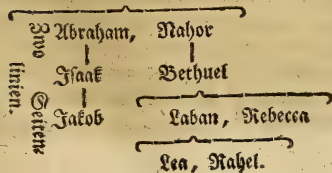 Zwo Seitenlinien.
Abraham, Nahor
Isaak Bethuel
Jakob Laban, Rebecca
Lea, Rahel.